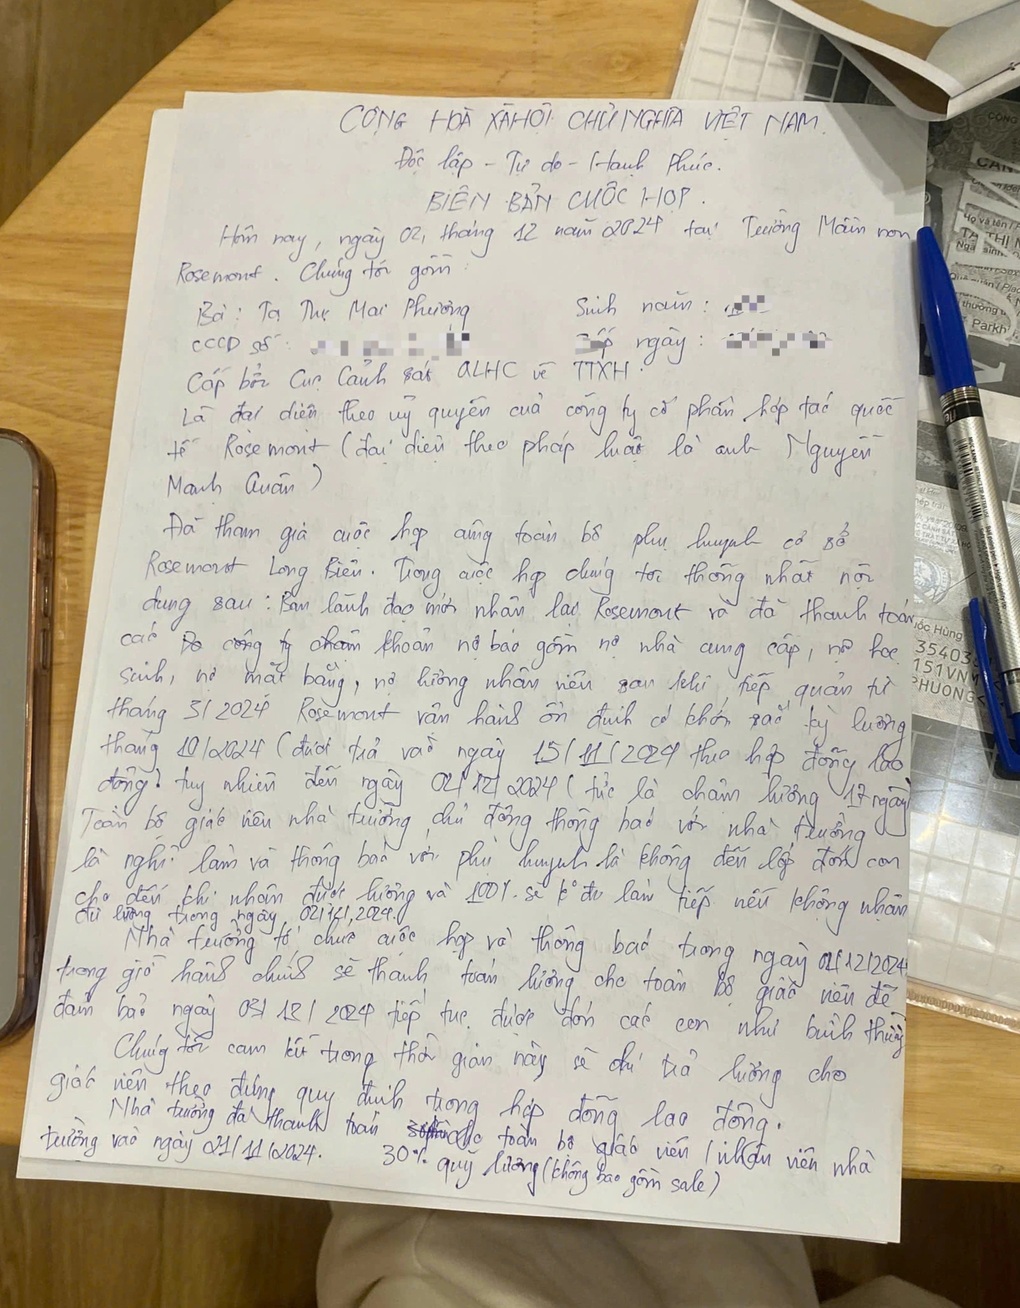 CỘNG HOÀ XÃ HỘI CHỦ NGHĨA VIỆT NAM.
Độc lập - Tự do - Hạnh Phúc.
BIÊN BẢN CUỘC HỌP.
Hôm nay, ngày 02, tháng 12 năm 2024 tại Trường Mầm non
Rosemont. Chúng tôi gồm:
Bà: Tạ Thị Mai Phương Sinh năm:
CCCD số: Cấp ngày:
Cấp bởi Cục Cảnh sát QLHC về TTXH.
Là đại diện theo uỷ quyền của công ty cổ phần hợp tác quốc
tế Rosemont (đại diện theo pháp luật là anh Nguyễn
Mạnh Quân)
Đã tham gia cuộc họp cùng toàn bộ phụ huynh cơ sở
Rosemont Long Biên. Trong cuộc họp chúng tôi thống nhất nội
dung sau: Ban lãnh đạo mới nhận lại Rosemont và đã thanh toán
các Do công ty khoản nợ bao gồm nợ nhà cung cấp, nợ học
sinh, nợ mặt bằng, nợ lương nhân viên sau khi tiếp quản từ
tháng 3/2024 Rosemont vận hành ổn định có kỳ lương
tháng 10/2024 (được trả vào ngày 15/11/2024 theo hợp đồng lao
động. tuy nhiên đến ngày 02/12/2024 (tức là chậm lương 17 ngày)
Toàn bộ giáo viên nhà trường chủ động thông báo với nhà trường
là nghỉ làm và thông báo với phụ huynh là không đến lớp đón con
cho đến khi nhận được lương và 100% sẽ k đi làm tiếp nếu không nhận
đủ lương trong ngày 02/12/2024.
Nhà trường tổ chức cuộc họp và thông báo trong ngày 02/12/2024
trong giờ hành chính sẽ thanh toán lương cho toàn bộ giáo viên để
đảm bảo ngày 03/12/2024 tiếp tục được đón các con như bình thường
Chúng tôi cam kết trong thời gian này sẽ chi trả lương cho
giáo viên theo đúng quy định trong hợp đồng lao động.
Nhà trường đã thanh toán cho toàn bộ giáo viên / nhân viên nhà
trường vào ngày 21/11/2024. 30% quỹ lương (không bao gồm sale)